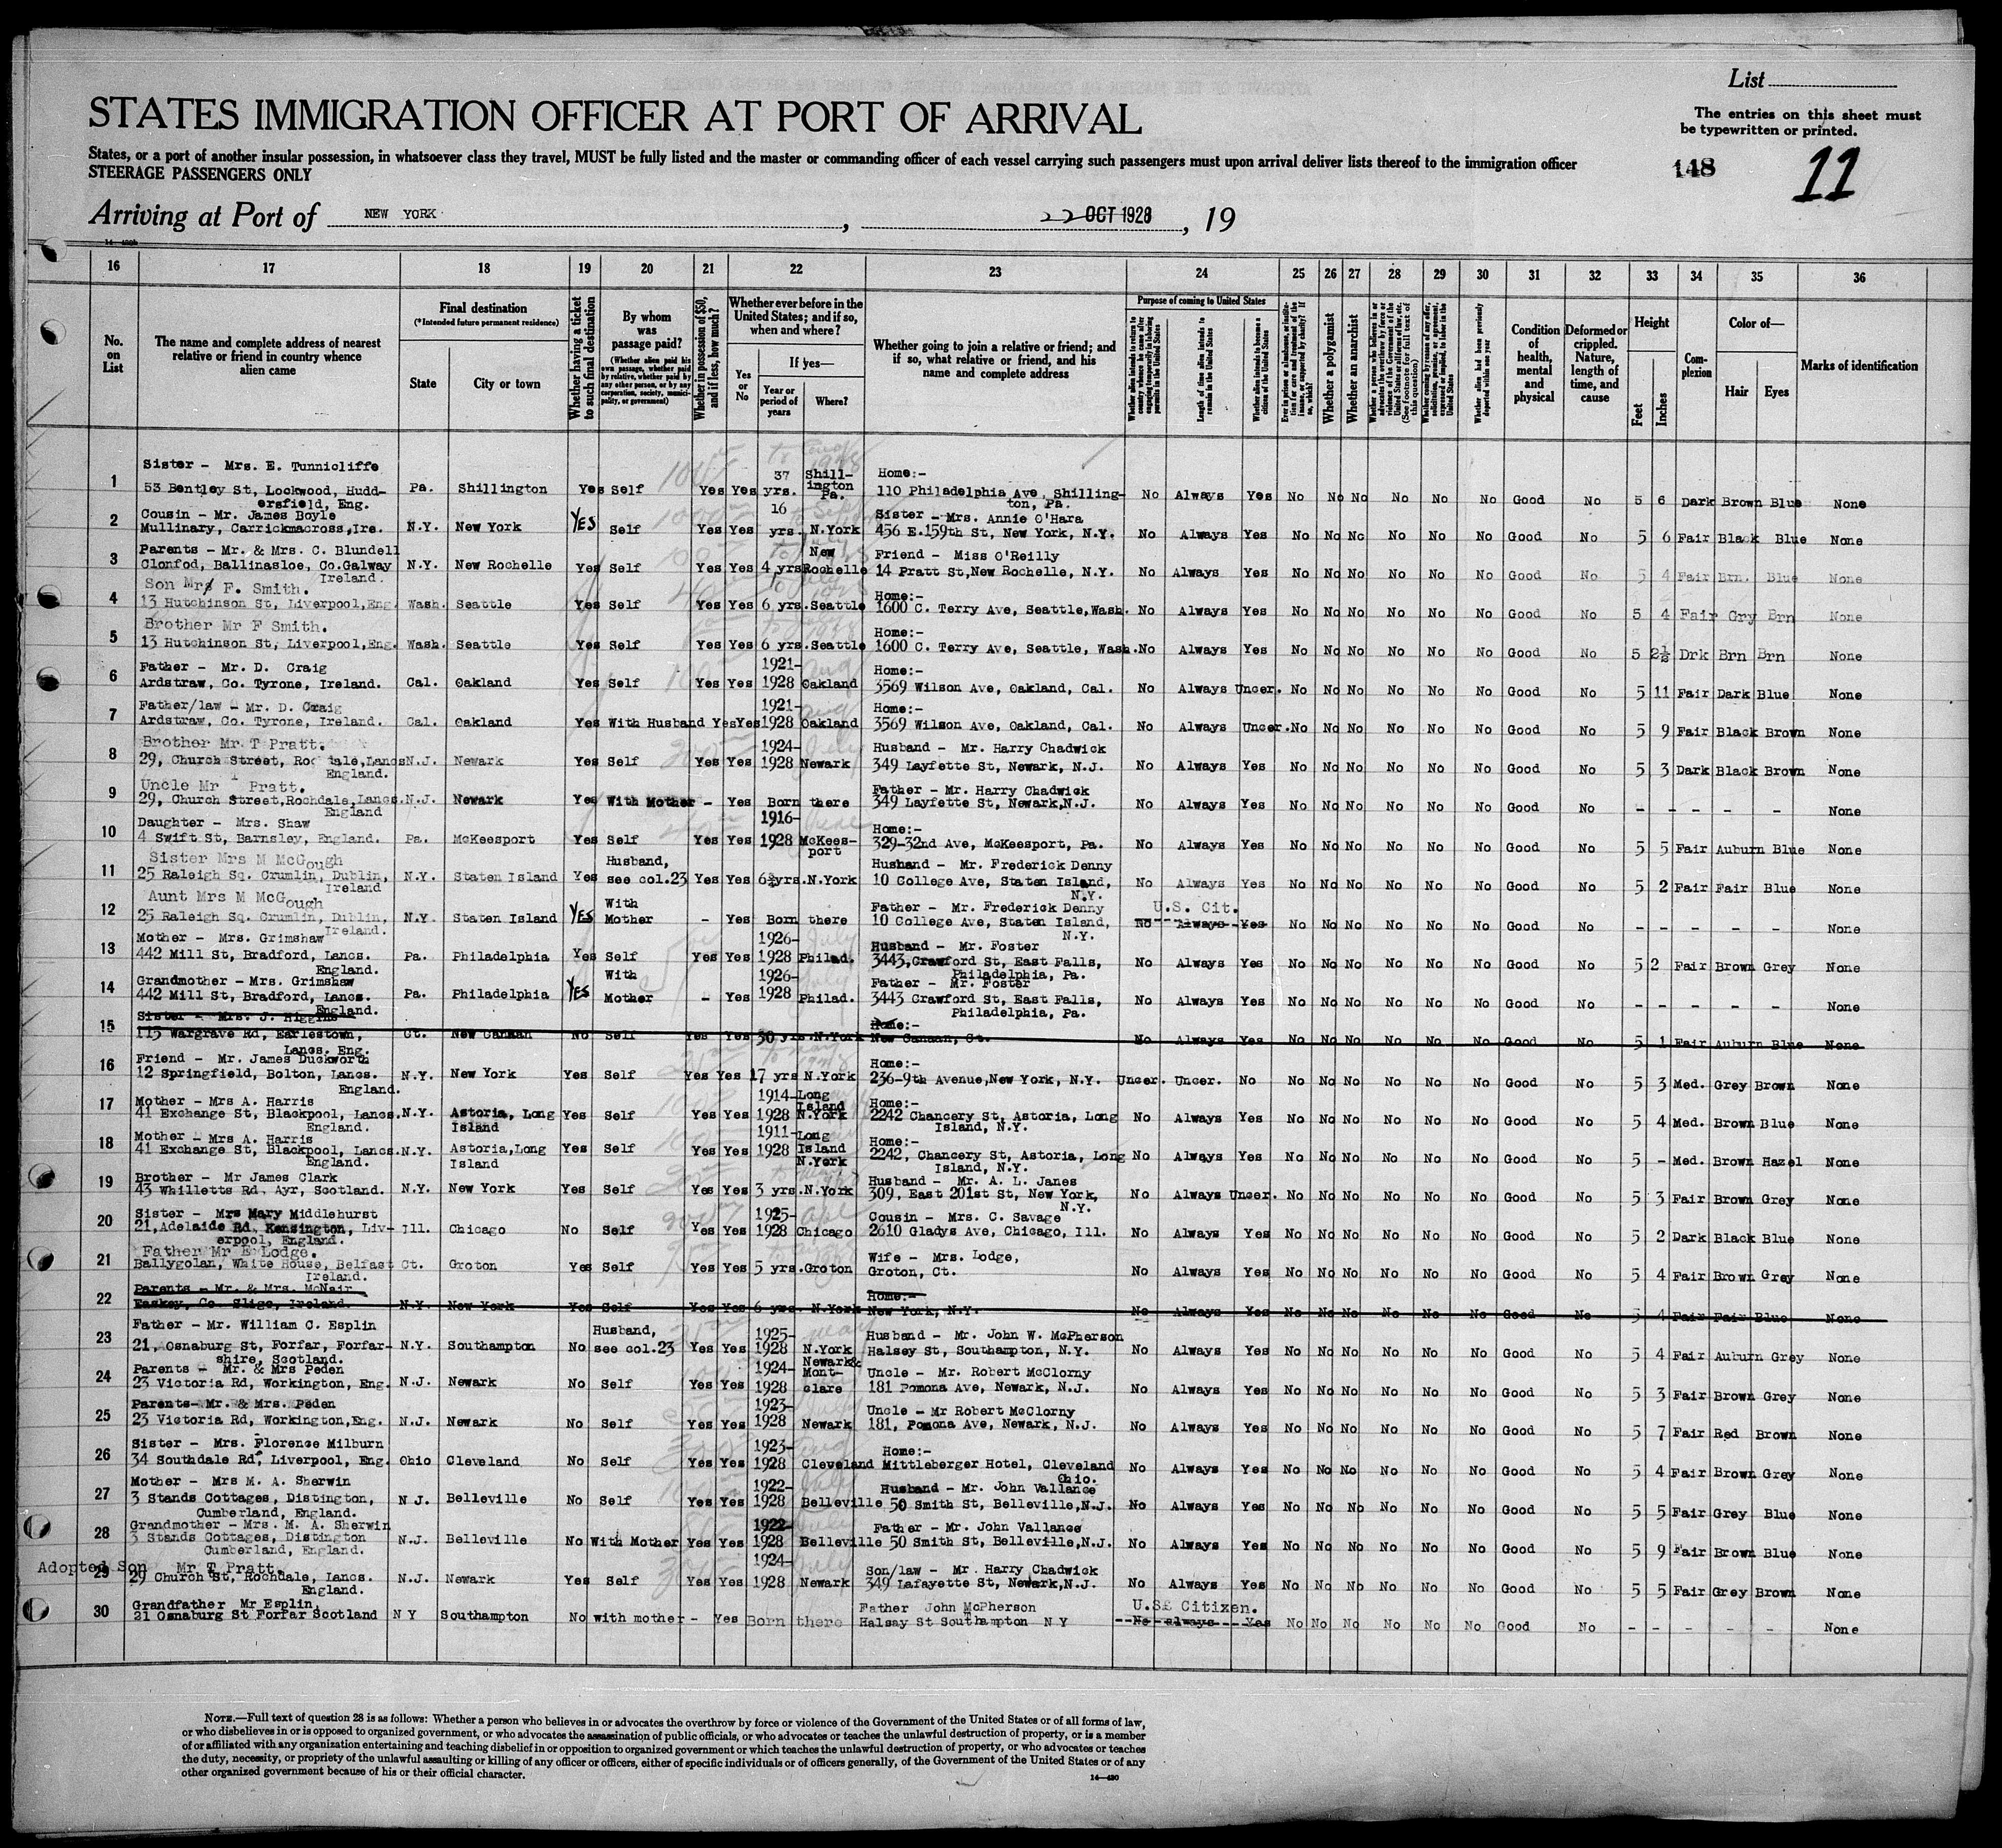 List
STATES IMMIGRATION OFFICER AT PORT OF ARRIVAL
The entries on this sheet must
be typewritten or printed.
States, or a port of another insular possession, in whatsoever class they travel, MUST be fully listed and the master or commanding officer of each vessel carrying such passengers must upon arrival deliver lists thereof to the immigration officer
STEERAGE PASSENGERS ONLY
148 11
Arriving at Port of NEW YORK, 22 OCT 1928, 19
16 17 18 19 20 21 22 23 24 25 26 27 28 29 30 31 32 33 34 35 36
No. on List
The name and complete address of nearest relative or friend in country whence alien came
Final destination
(*Intended future permanent residence)
State
City or town
Whether having a ticket to such final destination
By whom was passage paid?
(Whether alien paid his own passage, whether paid by relative, whether paid by any other person, or by any corporation, society, municipality, or government)
Whether in possession of $50, and if less, how much?
Whether ever before in the United States; and if so, when and where?
Yes or No
If yes—
Year or period of years
Where?
Whether going to join a relative or friend; and if so, what relative or friend, and his name and complete address
Purpose of coming to United States
Length of time alien intends to remain in the United States
Whether alien intends to become a citizen of the United States
Whether a polygamist
Whether an anarchist
Condition of health, mental and physical
Deformed or crippled. Nature, length of time, and cause
Height
Feet
Inches
Complexion
Color of—
Hair
Eyes
Marks of identification
1 Sister - Mrs. E. Tunnicliffe 37 Shill- Home:-
53 Bentley St, Lockwood, Hudd- Pa. Shillington Yes Self Yes Yes yrs. ington 110 Philadelphia Ave, Shilling- No Always Yes No No No No No No Good No 5 6 Dark Brown Blue None
ersfield, Eng. Pa. ton, Pa.
2 Cousin - Mr. James Boyle 16 Sister - Mrs. Annie O'Hara
Mullinary, Carrickmacross, Ire. N.Y. New York YES Self Yes Yes yrs. N.York 456 E.159th St, New York, N.Y. No Always Yes No No No No No No Good No 5 6 Fair Black Blue None
3 Parents - Mr. & Mrs. C. Blundell New Friend - Miss O'Reilly
Clonfod, Ballinasloe, Co.Galway N.Y. New Rochelle Yes Self Yes Yes 4 yrs Rochelle 14 Pratt St, New Rochelle, N.Y. No Always Yes No No No No No No Good No 5 4 Fair Brn. Blue None
Ireland.
4 Son Mr F. Smith. Home:-
13 Hutchinson St, Liverpool,Eng. Wash. Seattle Yes Self Yes Yes 6 yrs. Seattle 1600 C. Terry Ave, Seattle,Wash. No Always Yes No No No No No No Good No 5 4 Fair Gry Brn None
5 Brother Mr F Smith. Home:-
13 Hutchinson St, Liverpool,Eng. Wash. Seattle Yes Self Yes Yes 6 yrs. Seattle 1600 C. Terry Ave, Seattle, Wash. No Always Yes No No No No No No Good No 5 2½ Drk Brn Brn None
6 Father - Mr. D. Craig 1921- Home:-
Ardstraw, Co. Tyrone, Ireland. Cal. Oakland Yes Self Yes Yes 1928 Oakland 3569 Wilson Ave, Oakland, Cal. No Always Uncer. No No No No No No Good No 5 11 Fair Dark Blue None
7 Father/law - Mr. D. Craig 1921- Home:-
Ardstraw, Co. Tyrone, Ireland. Cal. Oakland Yes With Husband Yes Yes 1928 Oakland 3569 Wilson Ave, Oakland, Cal. No Always Uncer. No No No No No No Good No 5 9 Fair Black Brown None
8 Brother Mr T Pratt. 1924- Husband - Mr. Harry Chadwick
29, Church Street, Rochdale, Lancs N.J. Newark Yes Self Yes Yes 1928 Newark 349 Layfette St, Newark, N.J. No Always Yes No No No No No No Good No 5 3 Dark Black Brown None
England.
9 Uncle Mr Pratt. Father - Mr. Harry Chadwick
29, Church Street,Rochdale, Lancs. N.J. Newark Yes With Mother - Yes Born there 349 Layfette St, Newark,N.J. No Always Yes No No No No No No Good No - - - - - None
England
10 Daughter - Mrs. Shaw 1916- Home:-
4 Swift St, Barnsley, England. Pa. McKeesport Yes Self Yes Yes 1928 McKees- 329-32nd Ave, McKeesport, Pa. No Always Yes No No No No No No Good No 5 5 Fair Auburn Blue None
port
11 Sister Mrs M McGough Husband, Husband - Mr. Frederick Denny
25 Raleigh Sq. Crumlin, Dublin, N.Y. Staten Island Yes see col.23 Yes Yes yrs. N.York 10 College Ave, Staten Island, No Always Yes No No No No No No Good No 5 2 Fair Fair Blue None
Ireland N.Y.
12 Aunt Mrs M McGough With Father - Mr. Frederick Denny U.S. Cit.
25 Raleigh Sq. Crumlin, Dublin, N.Y. Staten Island YES Mother - Yes Born there 10 College Ave, Staten Island, No Always Yes No No No No No No Good No - - - - - None
Ireland. N.Y.
13 Mother - Mrs. Grimshaw 1926- Husband - Mr. Foster
442 Mill St, Bradford, Lancs. Pa. Philadelphia Yes Self Yes Yes 1928 Philad. 3443, Crawford St, East Falls, No Always Yes No No No No No No Good No 5 2 Fair Brown Grey None
England. Philadelphia, Pa.
14 Grandmother - Mrs. Grimshaw With 1926- Father - Mr. Foster
442 Mill St, Bradford, Lancs. Pa. Philadelphia YES Mother - Yes 1928 Philad. 3443 Crawford St, East Falls, No Always Yes No No No No No No Good No - - - - - None
England. Philadelphia, Pa.
15 Sister - Mrs. J. Higgins Home:-
115 Wargrave Rd, Earlestown, Ct. New Canaan No Self Yes Yes 30 yrs. N.York New Canaan, Ct. No Always Yes No No No No No No Good No 5 1 Fair Auburn Blue None
Lancs. Eng.
16 Friend - Mr. James Duckworth Home:-
12 Springfield, Bolton, Lancs. N.Y. New York Yes Self Yes Yes 17 yrs N.York 236-9th Avenue,New York, N.Y. Uncer. Uncer. No No No No No No No Good No 5 3 Med. Grey Brown None
England.
17 Mother - Mrs A. Harris 1914- Long Island Home:-
41 Exchange St, Blackpool, Lancs. N.Y. Astoria, Long Island Yes Self Yes Yes 1928 N.York 2242 Chancery St, Astoria, Long No Always Yes No No No No No No Good No 5 4 Med. Brown Blue None
England. Island, N.Y.
18 Mother - Mrs A. Harris 1911- Long Home:-
41 Exchange St, Blackpool, Lancs. N.Y. Astoria,Long Island Yes Self Yes Yes 1928 Island N.York 2242, Chancery St, Astoria, Long No Always Yes No No No No No No Good No 5 - Med. Brown Hazel None
England. Island, N.Y.
19 Brother - Mr James Clark Husband - Mr. A. L. Janes
43 Whilletts Rd. Ayr, Scotland. N.Y. New York Yes Self Yes Yes 3 yrs. N.York 309, East 201st St, New York, No Always Uncer. No No No No No No Good No 5 3 Fair Brown Grey None
N.Y.
20 Sister - Mrs Mary Middlehurst 1925- Cousin - Mrs. C. Savage
21,Adelaide Rd, Kensington, Liv- Ill. Chicago No Self Yes Yes 1928 Chicago 2610 Gladys Ave, Chicago, Ill. No Always Yes No No No No No No Good No 5 2 Dark Black Blue None
erpool, England.
21 Father Mr E Lodge. Wife - Mrs. Lodge,
Ballygolan, White House, Belfast Ct. Groton Yes Self Yes Yes 5 yrs. Groton Groton, Ct. No Always Yes No No No No No No Good No 5 4 Fair Brown Grey None
Ireland.
22 Parents - Mr. & Mrs. McNair Home:-
Easkey, Co. Sligo, Ireland. N.Y. New York Yes Self Yes Yes 6 yrs. N.York New York, N.Y. No Always Yes No No No No No No Good No 5 4 Fair Fair Blue None
23 Father - Mr. William C. Esplin Husband, 1925- Husband - Mr. John W. McPherson
21, Osnaburg St, Forfar, Forfar- N.Y. Southampton No see col.23 Yes Yes 1928 N.York Halsey St, Southampton, N.Y. No Always Yes No No No No No No Good No 5 4 Fair Auburn Grey None
shire, Scotland.
24 Parents - Mr. & Mrs Peden 1924- Newark& Mont- Uncle - Mr. Robert McClorny
23 Victoria Rd, Workington, Eng. N.J. Newark No Self Yes Yes 1928 clare 181 Pomona Ave, Newark, N.J. No Always Yes No No No No No No Good No 5 3 Fair Brown Grey None
25 Parents- Mr. & Mrs. Peden 1923- Uncle - Mr Robert McClorny
23 Victoria Rd, Workington,Eng. N.J. Newark No Self Yes Yes 1928 Newark 181, Pomona Ave, Newark, N.J. No Always Yes No No No No No No Good No 5 7 Fair Red Brown None
26 Sister - Mrs. Florence Milburn 1923- Home:-
34 Southdale Rd, Liverpool, Eng. Ohio Cleveland No Self Yes Yes 1928 Cleveland Mittleberger Hotel, Cleveland No Always Yes No No No No No No Good No 5 4 Fair Brown Grey None
Ohio.
27 Mother - Mrs M. A. Sherwin 1922- Husband - Mr. John Vallance
3 Stands Cottages, Distington, N J. Belleville No Self Yes Yes 1928 Belleville 50 Smith St, Belleville,N.J. No Always Yes No No No No No No Good No 5 5 Fair Grey Blue None
Cumberland, England.
28 Grandmother - Mrs. M. A. Sherwin 1922- Father - Mr. John Vallance
3 Stands Cottages, Distington N.J. Belleville No With Mother Yes Yes 1928 Belleville 50 Smith St, Belleville,N.J. No Always Yes No No No No No No Good No 5 9 Fair Brown Blue None
Cumberland, England.
29 Adopted Son Mr T Pratt. 1924- Son/law - Mr. Harry Chadwick
29 Church St, Rochdale, Lancs. N.J. Newark Yes Self Yes Yes 1928 Newark 349 Lafayette St, Newark,N.J. No Always Yes No No No No No No Good No 5 5 Fair Grey Brown None
England.
30 Grandfather Mr Esplin, Father John McPherson U.S Citizen.
21 Osnaburg St Forfar Scotland N Y Southampton No with mother - Yes Born there Halsay St Southampton N Y No always Yes No No No No No No Good No - - - - - None
NOTE.—Full text of question 28 is as follows: Whether a person who believes in or advocates the overthrow by force or violence of the Government of the United States or of all forms of law,
or who disbelieves in or is opposed to organized government, or who advocates the assassination of public officials, or who advocates or teaches the unlawful destruction of property, or is a member
of or affiliated with any organization entertaining and teaching disbelief in or opposition to organized government or which teaches the unlawful destruction of property, or who advocates or teaches
the duty, necessity, or propriety of the unlawful assaulting or killing of any officer or officers, either of specific individuals or of officers generally, of the Government of the United States or of any
other organized government because of his or their official character.
14—430